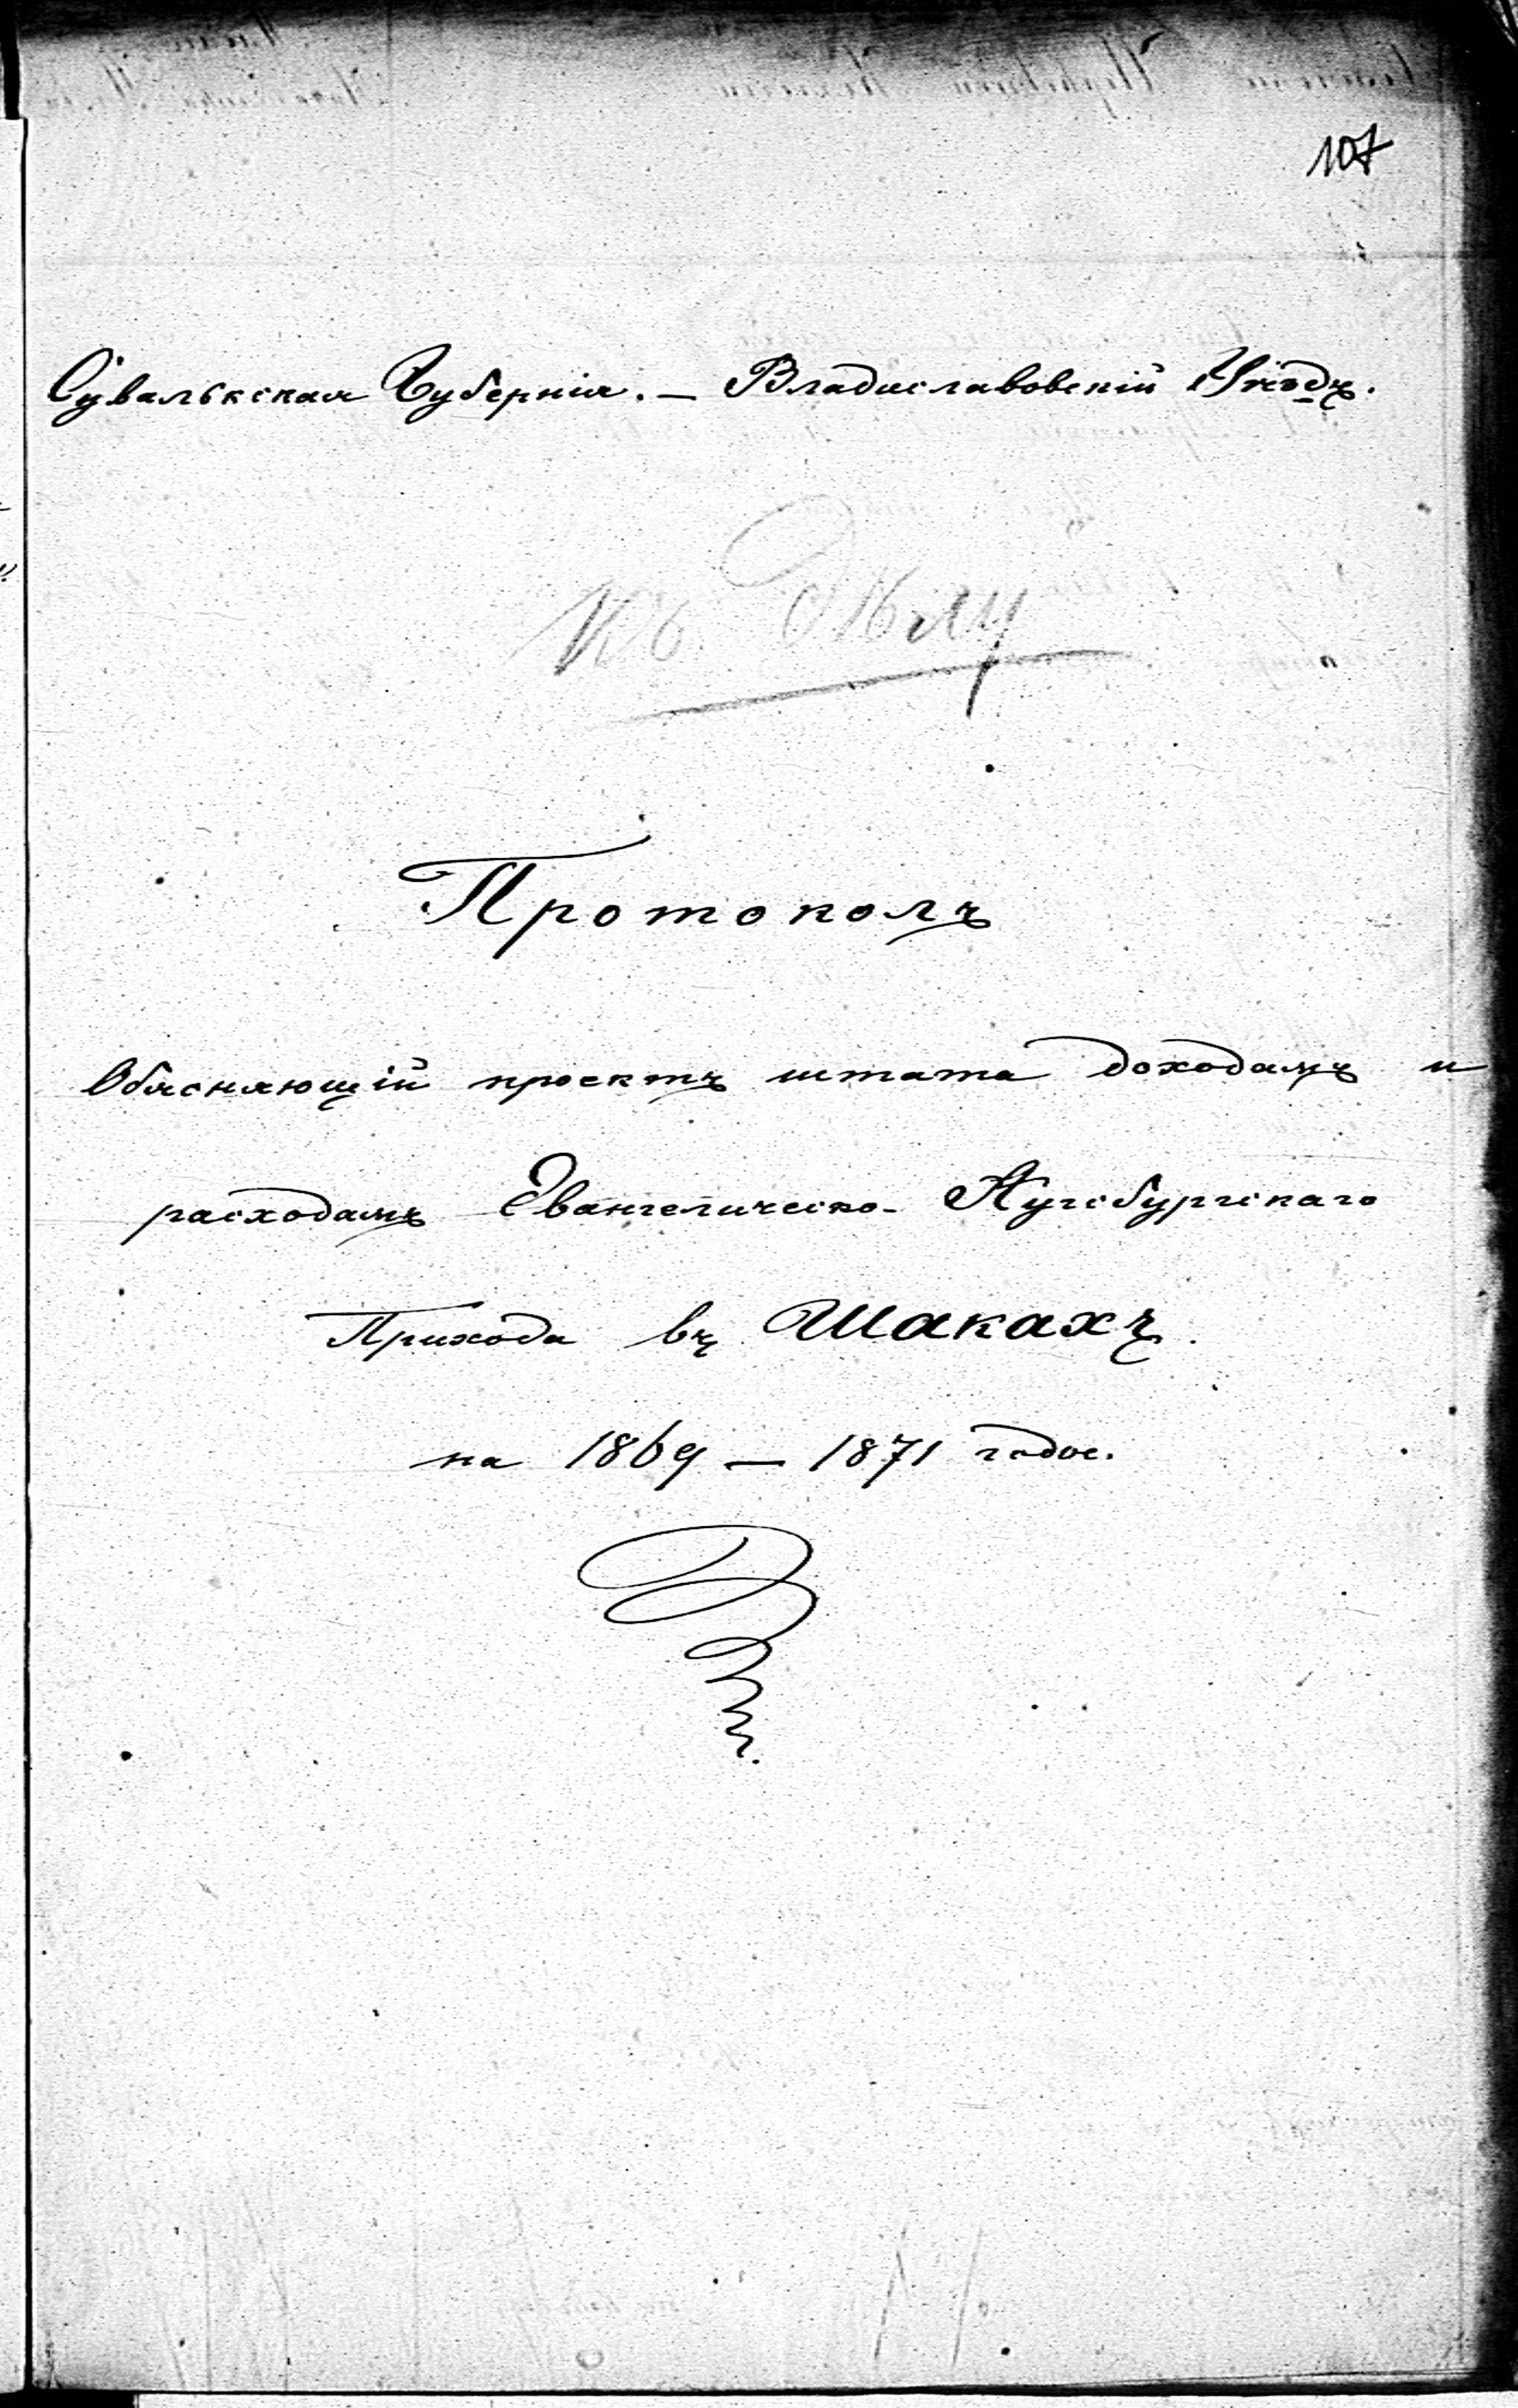 107
Сувалькская Губернія. — Владиславовскій Уѣздъ.
Къ Дѣлу
Протоколъ
Обясняющій проектъ штата доходамъ и
расходамъ Евангелическо-Аугсбургскаго
Прихода въ Шакахъ.
на 1869 — 1871 годы.